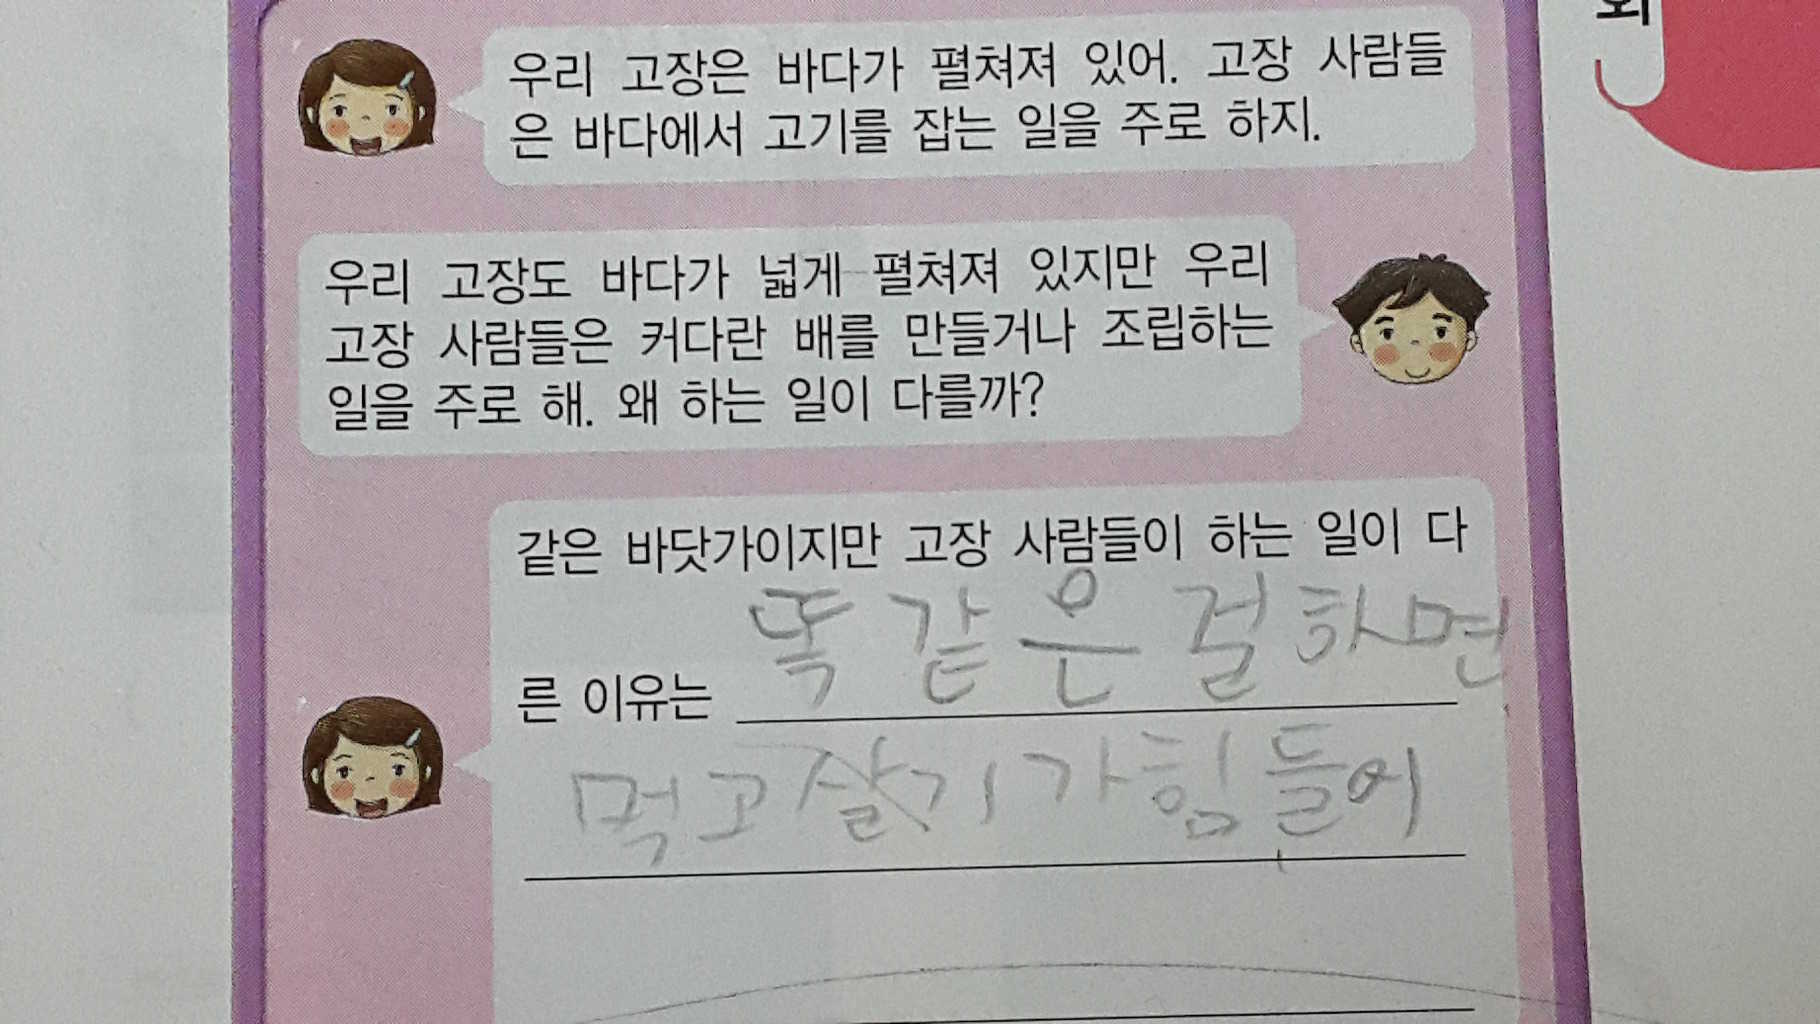 우리 고장은 바다가 펼쳐져 있어. 고장 사람들
은 바다에서 고기를 잡는 일을 주로 하지.
우리 고장도 바다가 넓게 펼쳐져 있지만 우리
고장 사람들은 커다란 배를 만들거나 조립하는
일을 주로 해. 왜 하는 일이 다를까?
같은 바닷가이지만 고장 사람들이 하는 일이 다
른 이유는 똑같은걸하면
먹고살기가힘들어